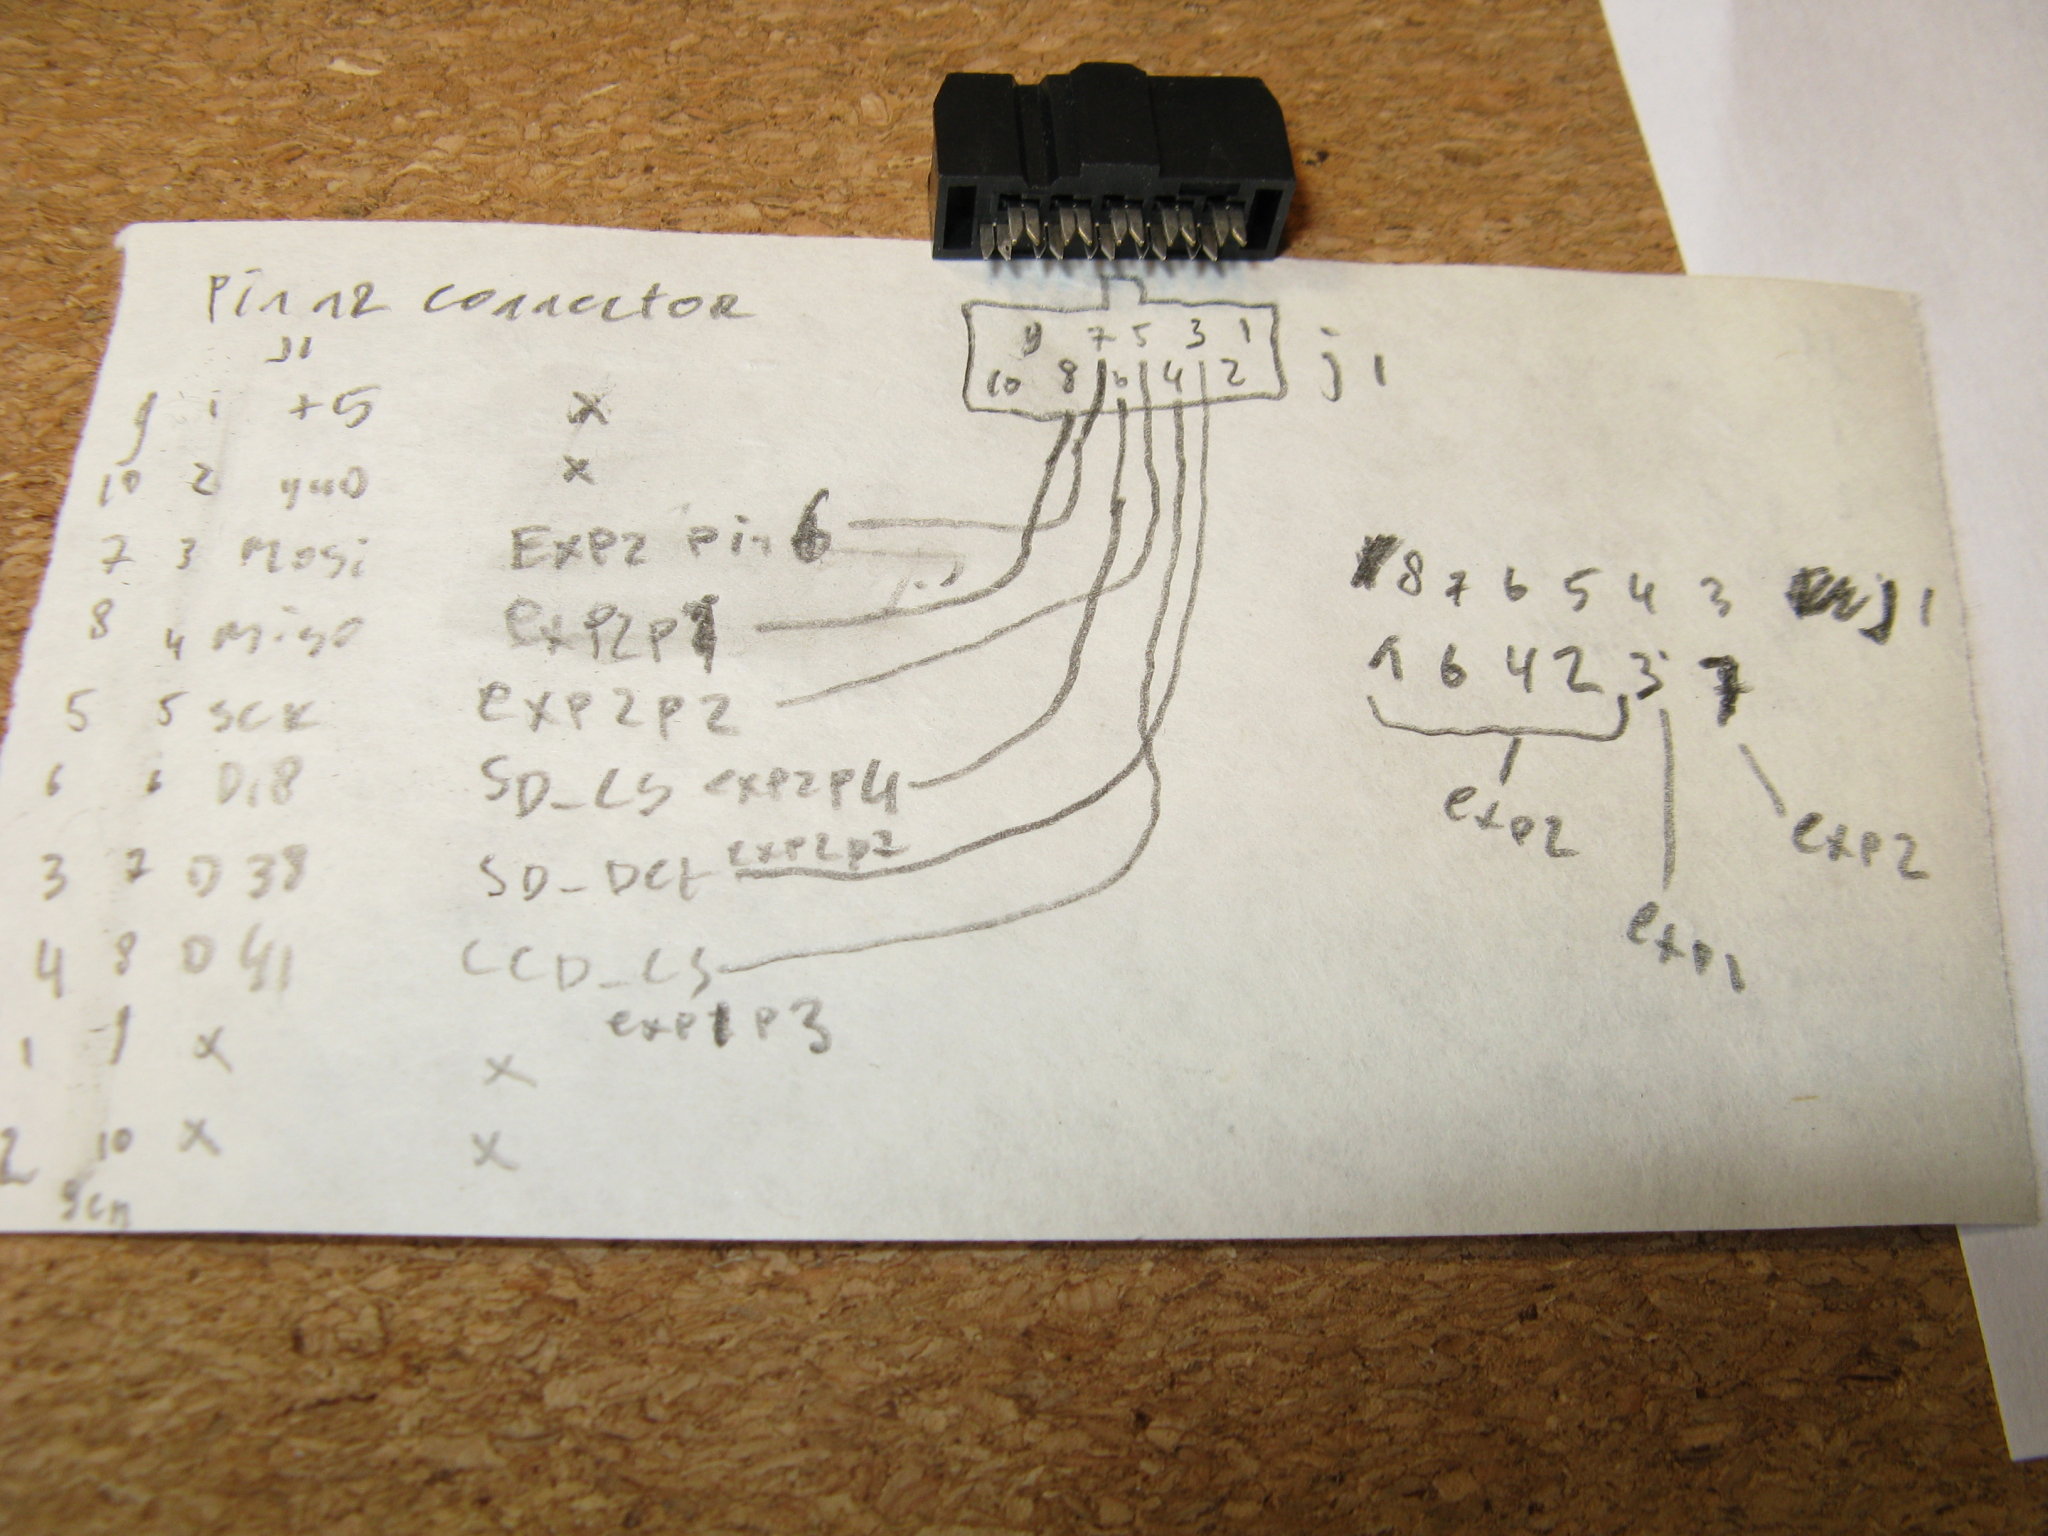 Pinn2 connector
j1
9 7 5 3 1
10 8 6 4 2
j1
9 1 +5 x
10 2 gnD x
7 3 Mosi EXP2 Pin 6
8 4 miso exp2p1
5 5 SCK exp2p2
6 6 D18 SD_CS exp2p4
3 7 D 38 SD_DCt exp2p7
4 8 D 41 LCD_CS
exp1 p3
1 9 x x
2 10 x x
8 7 6 5 4 3 j1
1 6 4 2 3 7
exp2
exp2
exp1